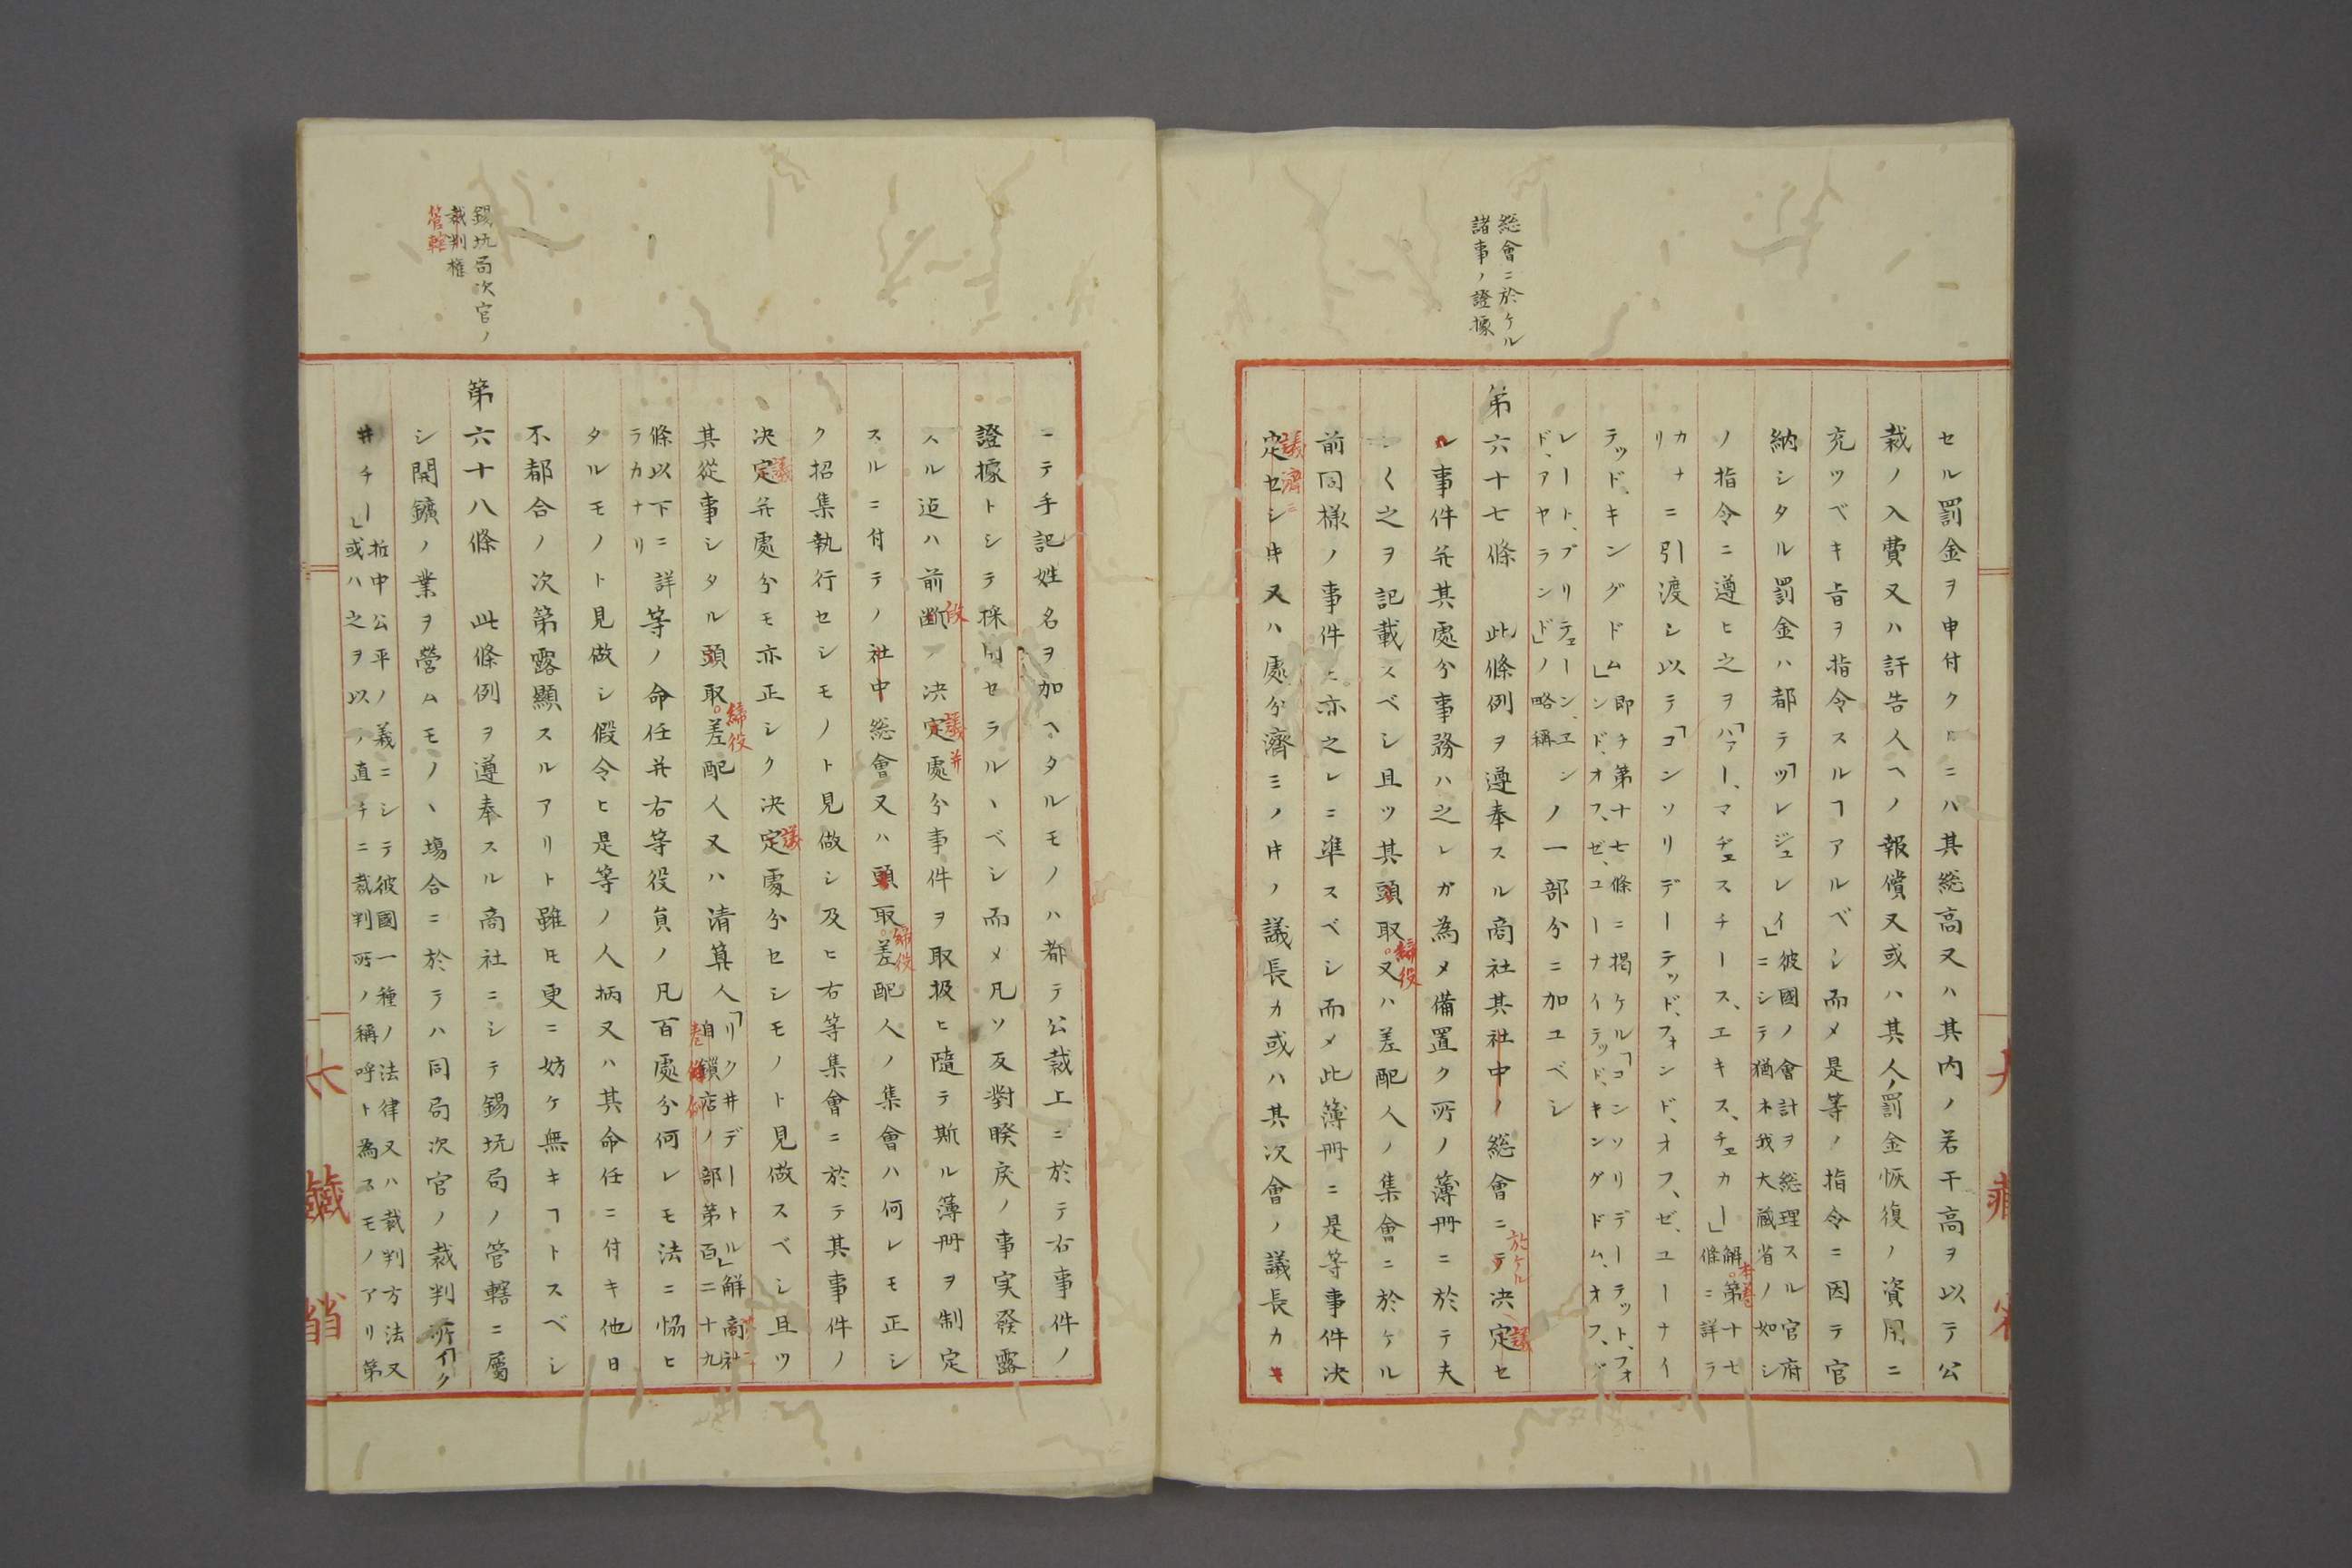 総會ニ於ケル
諸事ノ證據
セル罰金ヲ申付クㇽニハ其総高又ハ其内ノ若干高ヲ以テ公
裁ノ入費又ハ訐告人ヘノ報償又或ハ其人ノ罰金恢復ノ資用ニ
充ツベキ旨ヲ指令スルヿアルベシ而メ是等ノ指令ニ因テ官
納シタル罰金ハ都テ「ツレジュレイ」
彼國ノ會計ヲ総理スル官府
ニシテ猶ホ我大蔵省ノ如シ
ノ指令ニ遵ヒ之ヲ「ハアー、マヂェスチース、エキス、チェカー」
解本巻第十七
條ニ詳ラ
カナ
リ
ニ引渡シ以テ「コンソリデーテッド、フォンド、オフ、ゼ、ユーナイ
テッド、キングドム」
即チ第十七條ニ掲ケル「コンソリデーテット、フォ
ンド、オフ、ゼ、ユーナイテッド、キングドム、オフ、グ
レート、ブリテェーン、エン
ド、アヤランンド」ノ略稱
ノ一部分ニ加ユベシ
第六十七條 此條例ヲ遵奉スル商社其社中ノ総會ニ於ケルテ決定議セ
ル事件并其處分事務ハ之レガ為メ備置ク所ノ簿冊ニ於テ夫
シク之ヲ記載スベシ且ツ其頭取締役又ハ差配人ノ集會ニ於ケル
前同様ノ事件ニ亦之レニ準スベシ而メ此簿冊ニ是等事件決
定議濟ニセシ時又ハ處分濟ミノ時ノ議長カ或ハ其次會ノ議長カキ
ニテ手記姓名ヲ加ヘタルモノハ都テ公裁上ニ於テ右事件ノ
證據トシテ採用セラルヽベシ而メ凡ソ反對睽戻ノ事実發露
スル迠ハ前断ノ決定議并處分事件ヲ取扱ヒ隨テ斯ル簿冊ヲ制定
スルニ付テノ社中総會又ハ頭取締役差配人ノ集會ハ何レモ正シ
ク招集執行セシモノト見做シ及ヒ右等集會ニ於テ其事件ノ
決定議并處分モ亦正シク決定議處分セシモノト見做スベシ且ツ
其從事シタル頭取締役差配人又ハ清算人
「リク井デートル」解商社
自鎖店ノ部第百二十九
條以下ニ詳
ラカナリ
等ノ命任并右等役員ノ凡百處分何レモ法ニ恊ヒ
タルモノト見做シ假令ヒ是等ノ人柄又ハ其命任ニ付キ他日
不都合ノ次第露顯スルアリト雖𪜈更ニ妨ケ無キヿトスベシ
錫坑局次官ノ
裁判権
管轄
第六十八條 此條例ヲ遵奉スル商社ニシテ錫坑局ノ管轄ニ屬
シ開鑛ノ業ヲ營ムモノヽ場合ニ於テハ同局次官ノ裁判所「イク
井チー」
衹中公平ノ義ニシテ彼國一種ノ法律又ハ裁判方法又
或ハ之ヲ以ノ直チニ裁判所ノ稱呼ト為スモノアリ第
大藏省